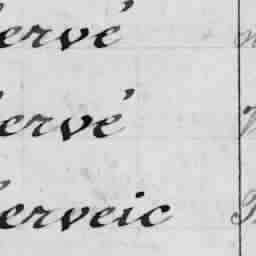 ervé
ervé
erveic